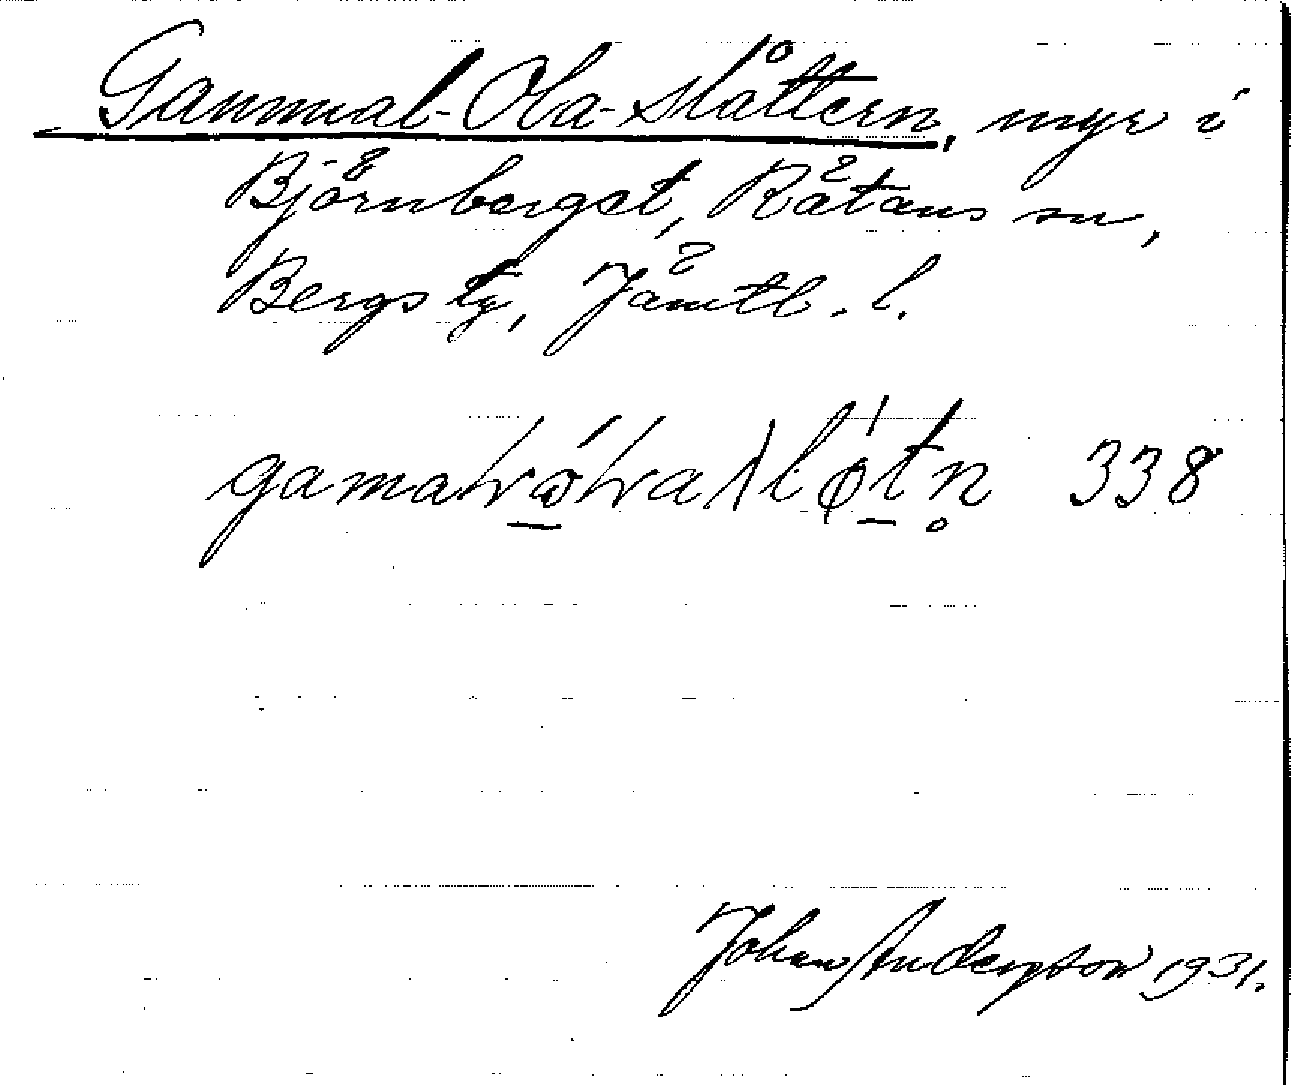 Gammal-Ola-slåttern, myr i
Björnberget, Rätans sn,
Bergs tg, Jämtl. l.
338
Johan Anderson 1931.